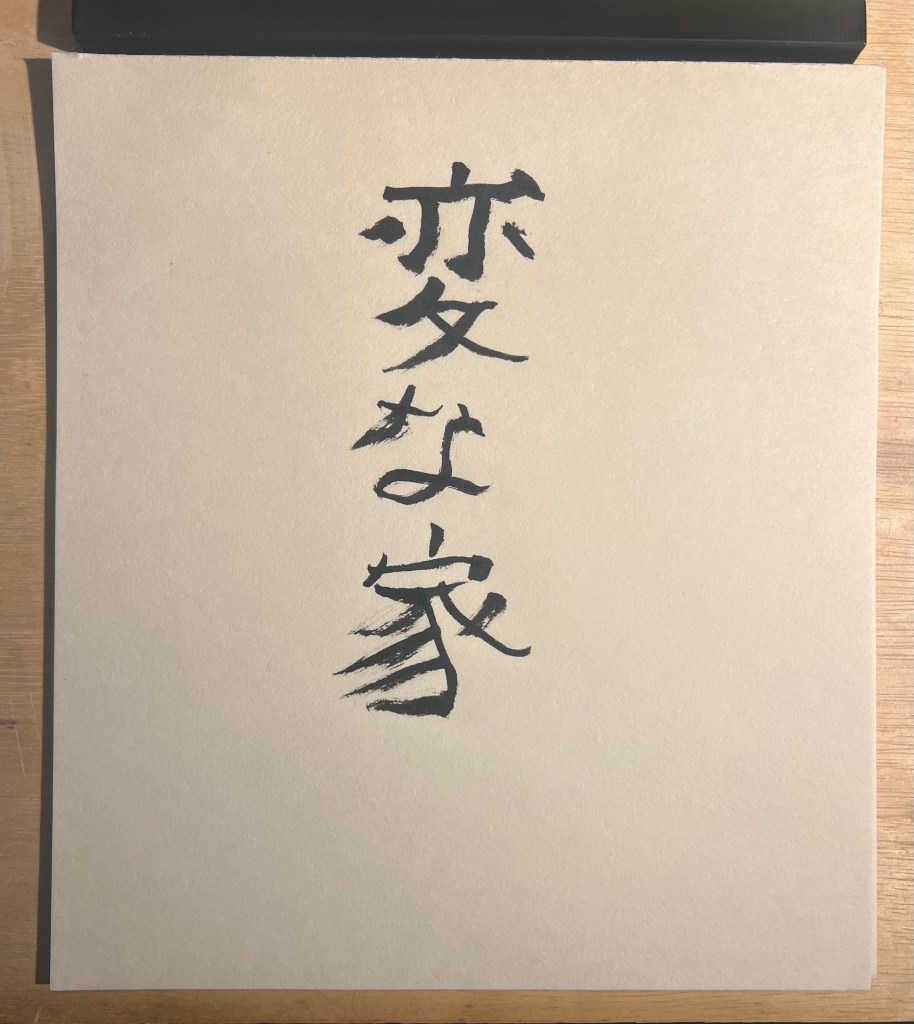 変な家